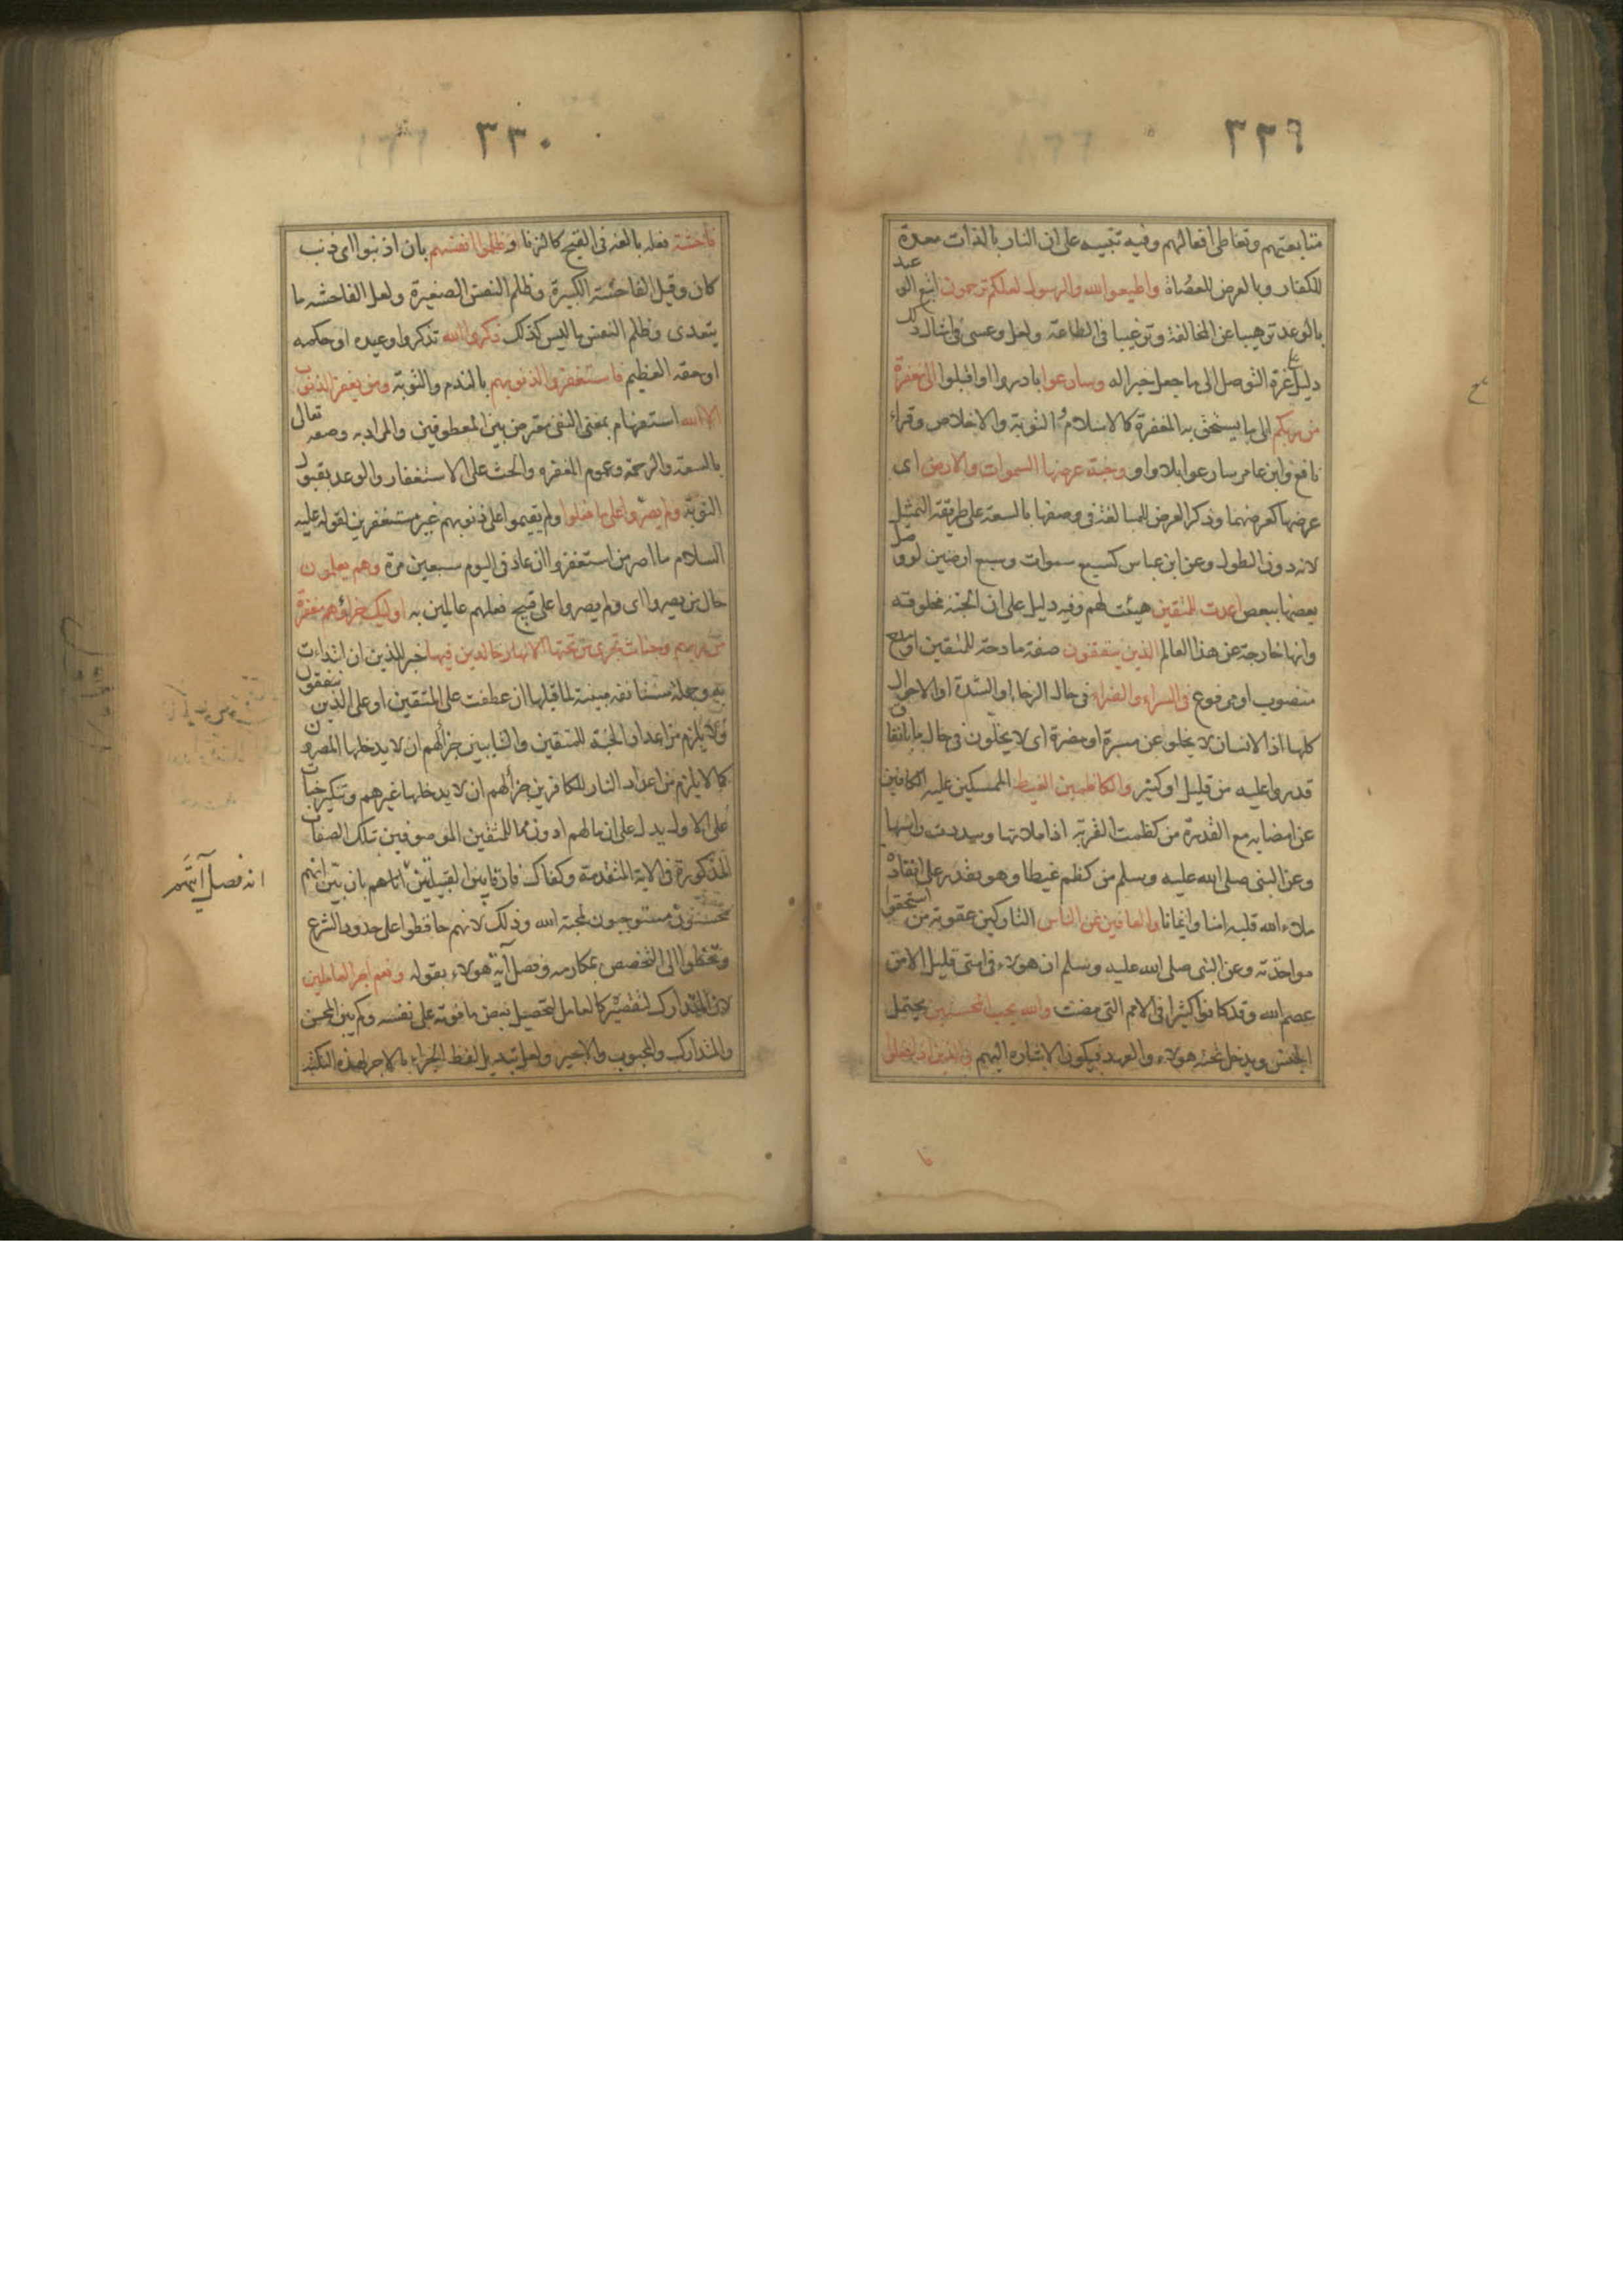 ٣٢٩
متابعتهم وتعاطى افعالهم وفيه تنبيه على ان النار بالذات معدة
للكفار وبالعرض للعصاة واطيعوا الله والرسول لعلكم ترحمون اتبع الوعيد
بالوعد ترهيبا عن المخالفة وترغيبا فى الطاعة ولعل وعسى فى امثال ذلك
دليل عزة التوصل الى ما جعل خبرا له وسارعوا بادروا او اقبلوا الى مغفرة
من ربكم الى ما يستحق به المغفرة كالاسلام والتوبة والاخلاص وقراء
نافع وابن عامر سارعوا بلا واو وجنة عرضها السموات والارض اى
عرضها كعرضهما وذكر العرض للمبالغة فى وصفها بالسعة على طريقة التمثيل
لانه دون الطول وعن ابن عباس كسبع سموات وسبع ارضين لو وصل
بعضها ببعض اعدت للمتقين هيئت لهم وفيه دليل على ان الجنة مخلوقة
وانها خارجة عن هذا العالم الذين ينفقون صفة مادحة للمتقين او مدح
منصوب او مرفوع فى السراء والضراء فى حال الرخاء والشدة او الاحوال
كلها اذ الانسان لا يخلو عن مسرة او مضرة اى لا يخلون فى حال ما بانفاق
قدروا عليه من قليل او كثير والكاظمين الغيظ الممسكين عليه الكافين
عن امضايه مع القدرة من كظمت القربة اذا ملاتها وسددت راسها
وعن النبى صلى الله عليه وسلم من كظم غيظا وهو يقدر على انفاذه
ملاء الله قلبه امنا وايمانا والعافين عن الناس التاركين عقوبة من استحقوا
مواخذته وعن النبى صلى الله عليه وسلم ان هولاء فى امتى قليل الا من
عصم الله وقد كانوا كثيرا فى الامم التى مضت والله يحب المحسنين يحتمل
الجنس ويدخل تحته هولاء والعهد فيكون الاشارة اليهم والذين اذا فعلوا
فا
٣٣٠
فاحشة فعلة بالغة فى القبح كالزنا او ظلموا انفسهم بان اذنبوا اى ذنب
كان وقيل الفاحشة الكبيرة وظلم النفس الصغيرة ولعل الفاحشة ما
يتعدى وظلم النفس ما ليس كذلك ذكروا الله تذكروا وعيده او حكمه
او حقه العظيم فاستغفروا لذنوبهم بالندم والتوبة ومن يغفر الذنوب
الا الله استفهام بمعنى النفى معترض بين المعطوفين والمراد به وصفه تعالى
بالسعة والرحمة وعموم المغفرة والحث على الاستغفار والوعد بقبول
التوبة ولم يصروا على ما فعلوا ولم يقيموا على ذنوبهم غير مستغفرين لقوله عليه
السلام ما اصر من استغفر وان عاد فى اليوم سبعين مرة وهم يعلمون
حال من يصروا اى ولم يصروا على قبيح فعلهم عالمين به اوليك جزاؤهم مغفرة
من ربهم وجنات تجرى من تحتها الانهار خالدين فيها خبر للذين ان ابتداءت
به وجملة مستانفة مبينة لما قبلها ان عطفت على المتقين او على الذين ينفقون
ولا يلزم من اعداد الجنة للمتقين والتايبين جزاء لهم ان لا يدخلها المصرون
كما لا يلزم من اعداد النار للكافرين جزاء لهم ان لا يدخلها غيرهم وتنكير جنات
على الاول يدل على ان ما لهم ادون مما للمتقين الموصوفين بتلك الصفات
المذكورة فى الاية المتقدمة وكفاك فارقا بين القبيلتين انه فصل آيتهم بان بين انهم
محسنون مستوجبون لمحبة الله وذلك لانهم حافظوا على حدود الشرع
وتخطوا الى التخصص بمكارمه وفصل آية هولاء بقوله ونعم اجر العاملين
لان المتدارك لتقصيره كالعامل لتحصيل بعض ما فوته على نفسه وكم بين المحسن
والمتدارك والمحبوب والاجير ولعل تبديل لفظ الجزاء بالاجر لهذه النكتة
انه فصل آيتهم